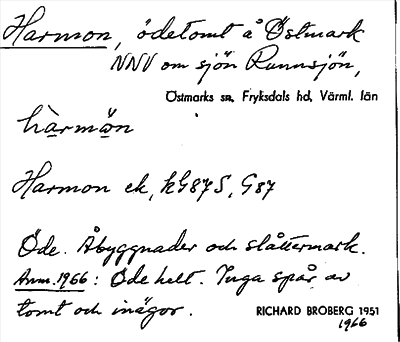 Harmon, ödetomt å Östmark
NNV om sjön Runnsjön,
Östmarks sn, Fryksdals hd, Värml. län
hàrmòn
Harmon ek, kG87S, G87
Öde. Åbyggnader och slåttermark.
Anm. 1966: Öde helt. Inga spår av
tomt och inägor.
RICHARD BROBERG 1951
1966